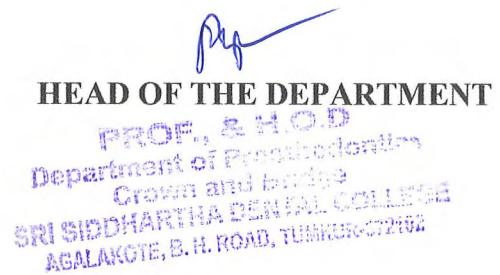 HEAD OF THE DEPARTMENT
PROF., & H.O.D
Department of Prosthodontics
Crown and Bridge
SRI SIDDHARTHA DENTAL COLLEGE
AGALAKOTE, B. H. ROAD, TUMKUR-572102